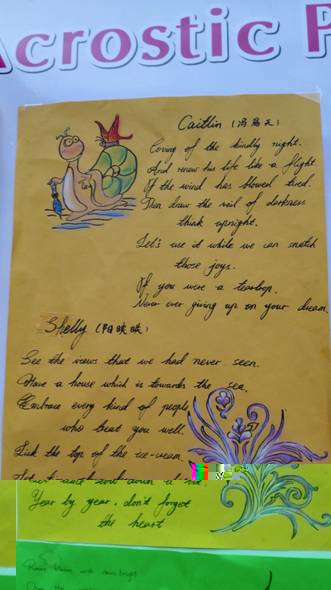 Acrostic P
Caitlin (冯
Coving of the kindly night.
And renew his life like a flight.
If the wind has blowed tired.
Then draw the veil of darkness
think upnight.
Let's use it while we can snatch
those joys.
If you were a teardrop.
Never ever giving up on your dream.
Shelly (阳
See the views that we had never seen.
Have a house which is towards the sea.
Embrace every kind of people
who beat you well.
Lick the top of the ice-cream.
down a
Year by year, don't forget
the heart